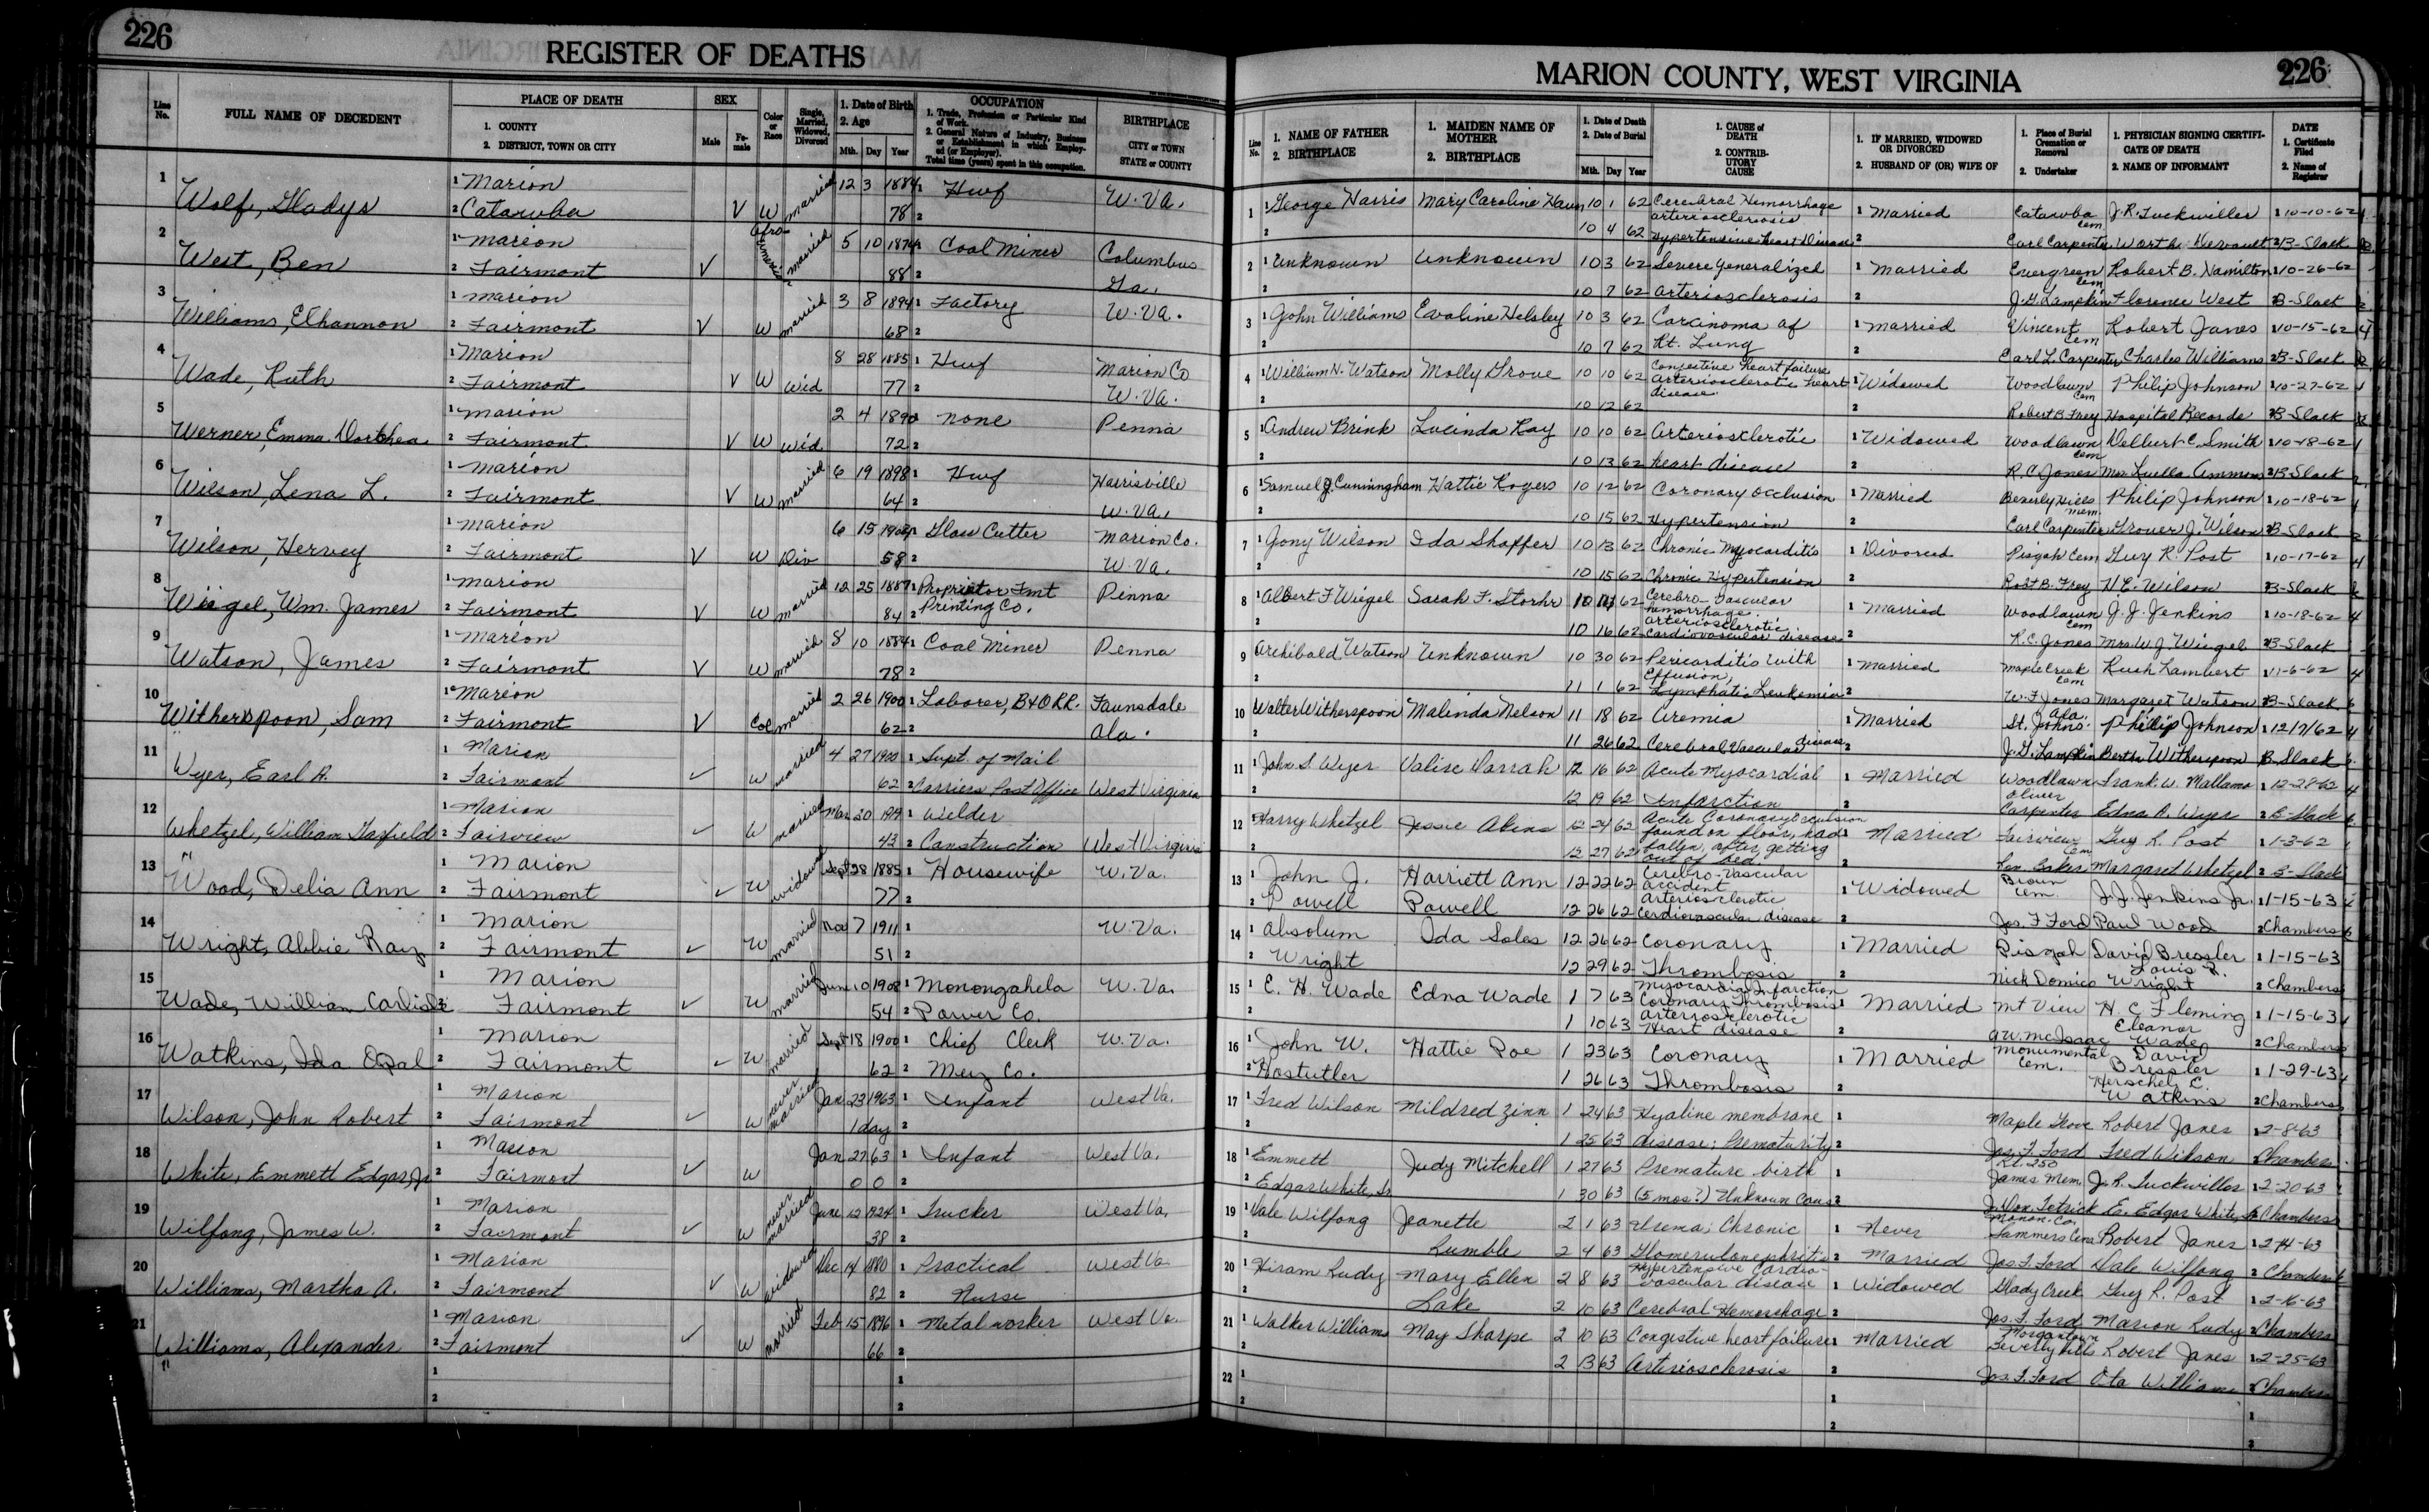 226
REGISTER OF DEATHS
Line No.
FULL NAME OF DECEDENT
PLACE OF DEATH
1. COUNTY
2. DISTRICT, TOWN OR CITY
SEX
Male
Female
Color or Race
Single, Married, Widowed, Divorced
1. Date of Birth
2. Age
Mth. Day Year
OCCUPATION
1. Trade, Profession or Particular Kind of Work.
2. General Nature of Industry, Business or Establishment in which Employed (or Employer).
Total time (years) spent in this occupation.
BIRTHPLACE
CITY or TOWN
STATE or COUNTY
1 Wolf, Gladys 1 Marion V W married 12 3 1884 1 Hwf W. Va.
2 Catawba 78 2
2 West, Ben 1 Marion V Afro American married 5 10 1874 1 Coal Miner Columbus
2 Fairmont 88 2 Ga.
3 Williams, Elhannon 1 Marion V W married 3 8 1894 1 Factory W. Va.
2 Fairmont 68 2
4 Wade, Ruth 1 Marion V W Wid 8 28 1885 1 Hwf Marion Co
2 Fairmont 77 2 W. Va.
5 Werner, Emma Dorthea 1 Marion V W Wid 2 4 1890 none Penna
2 Fairmont 72 2
6 Wilson, Lena L. 1 Marion V W married 6 19 1898 1 Hwf Harrisville
2 Fairmont 64 2 W. Va.
7 Wilson, Hervey 1 Marion V W Div 6 15 1904 1 Glass Cutter Marion Co.
2 Fairmont 58 2 W. Va.
8 Wiegel, Wm. James 1 Marion V W married 12 25 1887 1 Proprietor Fmt Penna
2 Fairmont 84 2 Printing Co.
9 Watson, James 1 Marion V W married 8 10 1884 1 Coal Miner Penna
2 Fairmont 78 2
10 Witherspoon, Sam 1 Marion V Col married 2 26 1900 1 Laborer, B&O RR. Faunsdale
2 Fairmont 62 2 Ala.
11 Wyer, Earl R. 1 Marion ✓ W married 4 27 1900 1 Supt. of Mail
2 Fairmont 62 2 Carriers Post Office West Virginia
12 Whetzel, William Garfield 1 Marion ✓ W married Mar 20 1919 1 Welder
2 Fairview 43 2 Construction West Virginia
13 Wood, Delia Ann 1 Marion ✓ W widowed Sept 28 1885 1 Housewife W. Va.
2 Fairmont 77 2
14 Wright, Abbie Ray 1 Marion ✓ W married Nov 7 1911 1 W. Va.
2 Fairmont 51 2
15 Wade, William Carlisle 1 Marion ✓ W married June 10 1908 1 Monongahela W. Va.
2 Fairmont 54 2 Power Co.
16 Watkins, Ida Opal 1 Marion ✓ W married Sept 18 1900 1 Chief Clerk W. Va.
2 Fairmont 62 2 Co.
17 Wilson, John Robert 1 Marion ✓ W never married Jan 23 1963 1 Infant West Va.
2 Fairmont 1 day 2
18 White, Emmett Edgar, Jr 1 Marion ✓ W Jan 27 63 1 Infant West Va.
2 Fairmont 0 0 2
19 Wilfong, James W. 1 Marion ✓ W never married June 12 1924 1 Trucker West Va.
2 Fairmont 38 2
20 Williams, Martha A. 1 Marion ✓ W widowed Dec 14 1880 1 Practical West Va
2 Fairmont 82 2 Nurse
21 Williams, Alexander 1 Marion ✓ W married Feb 15 1896 1 Metal worker West Va.
2 Fairmont 66 2
1 1
2 2
226
MARION COUNTY, WEST VIRGINIA
Line No.
1. NAME OF FATHER
2. BIRTHPLACE
1. MAIDEN NAME OF MOTHER
2. BIRTHPLACE
1. Date of Death
2. Date of Burial
Mth. Day Year
1. CAUSE of DEATH
2. CONTRIBUTORY CAUSE
1. IF MARRIED, WIDOWED OR DIVORCED
2. HUSBAND OF (OR) WIFE OF
1. Place of Burial Cremation or Removal
2. Undertaker
1. PHYSICIAN SIGNING CERTIFICATE OF DEATH
2. NAME OF INFORMANT
DATE
1. Certificate Filed
2. Name of Registrar
1 1 George Harris Mary Caroline 10 1 62 Cerebral Hemorrhage arteriosclerosis 1 Married Catawba Cem J. R. Tuckwiller 1 10-10-62
2 10 4 62 Hypertensive Heart Disease 2 Carl Carpenter Worth 2 B-Slack
2 1 Unknown Unknown 10 3 62 Severe Generalized 1 Married Evergreen Cem Robert B. Hamilton 1 10-26-62
2 10 7 62 arteriosclerosis 2 J. G. Lampkin Florence West 2 B-Slack
3 1 John Williams Evaline Helsley 10 3 62 Carcinoma of 1 Married Vincent Cem Robert Janes 1 10-15-62
2 10 7 62 Rt. Lung 2 Carl L. Carpenter Charles Williams 2 B-Slack
4 1 William N. Watson Molly Grove 10 10 62 Congestive heart failure Arteriosclerotic heart disease 1 Widowed Woodlawn Cem Philip Johnson 1 10-27-62
2 10 12 62 2 Robert B. Frey Hospital Records 2 B-Slack
5 1 Andrew Brink Lucinda Ray 10 10 62 Arteriosclerotic 1 Widowed Woodlawn Cem Delbert C. Smith 1 10-18-62
2 10 13 62 heart disease 2 R. C. Jones Mrs. Luella Ammons 2 B-Slack
6 1 Samuel J. Cunningham Hattie Rogers 10 12 62 Coronary occlusion 1 Married Beverly Hills Mem. Philip Johnson 1 10-18-62
2 10 15 62 Hypertension 2 Carl Carpenter Grover J. Wilson 2 B-Slack
7 1 Gony Wilson Ida Shaffer 10 13 62 Chronic Myocarditis 1 Divorced Pisgah Cem Guy R. Post 1 10-17-62
2 10 15 62 Chronic Hypertension 2 Robt B. Frey H. E. Wilson 2 B-Slack
8 1 Albert F Wiegel Sarah F. Storhr 10 14 62 Cerebro-Vascular hemorrhage 1 Married Woodlawn Cem J. J. Jenkins 1 10-18-62
2 10 16 62 arteriosclerotic cardiovascular disease 2 R. C. Jones Mrs W. J. Wiegel 2 B-Slack
9 1 Archibald Watson Unknown 10 30 62 Pericarditis with Effusion, 1 Married Maple Creek Cem Rush Lambert 1 11-6-62
2 11 1 62 Lymphatic Leukemia 2 W. F. Jones Margaret Watson 2 B-Slack
10 1 Walter Witherspoon Malinda Nelson 11 18 62 Uremia 1 Married St. Johns. Ala. Philip Johnson 1 12/7/62
2 11 26 62 Cerebral Vascular disease 2 J. G. Lampkin Bertha Witherspoon B. Slack
11 1 John S. Wyer Valise Darrah 12 16 62 Acute Myocardial 1 Married Woodlawn Frank W. Mallamo 1 12-28-62
2 12 19 62 Infarction 2 Oliver Carpenter Edna R. Wyer 2 B-Slack
12 1 Harry Whetzel Jessie Akins 12 24 62 Acute Coronary Occlusion found on floor, had 1 Married Fairview Cem Guy R. Post 1 1-3-62
2 12 27 62 fallen, after getting out of bed 2 Baker Margaret Whetzel 2 B-Slack
13 1 John J. Harriett Ann 12 22 62 Cerebro-Vascular accident 1 Widowed Brown Cem. J. J. Jenkins Jr. 1 1-15-63
2 Powell Powell 12 26 62 Arteriosclerotic Cardiovascular disease 2 Jos. F Ford Paul Wood 2 Chambers
14 1 Absolum Ida Soles 12 26 62 Coronary 1 Married Pisgah David Bressler 1 1-15-63
2 Wright 12 29 62 Thrombosis 2 Nick Domico Louis R. Wright 2 Chambers
15 1 E. H. Wade Edna Wade 1 7 63 Myocardial Infarction Coronary Thrombosis 1 Married Mt View H. C Fleming 1 1-15-63
2 1 10 63 Arteriosclerotic Heart disease 2 A W. McIsaac Eleanor Wade 2 Chambers
16 1 John W. Hattie Poe 1 23 63 Coronary 1 Married Monumental Cem. David Bressler 1 1-29-63
2 Hostutler 1 26 63 Thrombosis 2 Herschel C. Watkins 2 Chambers
17 1 Fred Wilson Mildred Zinn 1 24 63 Hyaline membrane 1 Maple Grove Robert Janes 1 2-8-63
2 1 25 63 disease; Prematurity 2 Jos. F. Ford Fred Wilson 2 Chambers
18 1 Emmett Judy Mitchell 1 27 63 Premature birth 1 Rt. 250 James Mem. J. R. Tuckwiller 1 2-20-63
2 Edgar White, Sr 1 30 63 (5 mos?) Unknown Cause 2 J. Don Tetrick E. Edgar White, Sr 2 Chambers
19 1 Dale Wilfong Jeanette 2 1 63 Uremia; Chronic 1 Never Monon. Co. Summers Cem. Robert Janes 1 2-14-63
2 Rumble 2 4 63 Glomerulonephritis 2 Married Jos. F. Ford Dale Wilfong 2 Chambers
20 1 Hiram Rudy Mary Ellen 2 8 63 Hypertensive Cardio-vascular disease 1 Widowed Glady Creek Guy R. Post 1 2-16-63
2 Lake 2 10 63 Cerebral Hemorrhage 2 Jos. F. Ford Marion Rudy 2 Chambers
21 1 Walker Williams May Sharpe 2 10 63 Congestive heart failure 1 Married Morgantown Beverly Hills Robert Janes 1 2-25-63
2 2 13 63 Arteriosclerosis 2 Jos. F. Ford Ota Williams 2 Chambers
22 1 1 1
2 2 2